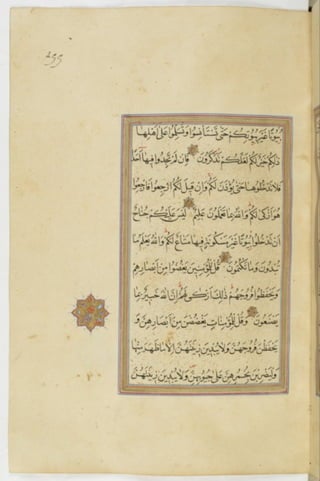 بيوتا غير بيوتكم حتى تستأنسوا وتسلموا على أهلها
ذلكم خير لكم لعلكم تذكرون فإن لم تجدوا فيها أحدا
فلا تدخلوها حتى يؤذن لكم وإن قيل لكم ارجعوا فارجعوا
هو أزكى لكم والله بما تعملون عليم ليس عليكم جناح
أن تدخلوا بيوتا غير مسكونة فيها متاع لكم والله يعلم ما
تبدون وما تكتمون قل للمؤمنين يغضوا من أبصارهم
ويحفظوا فروجهم ذلك أزكى لهم إن الله خبير بما
يصنعون وقل للمؤمنات يغضضن من أبصارهن و
يحفظن فروجهن ولا يبدين زينتهن إلا ما ظهر منها
وليضربن بخمرهن على جيوبهن ولا يبدين زينتهن